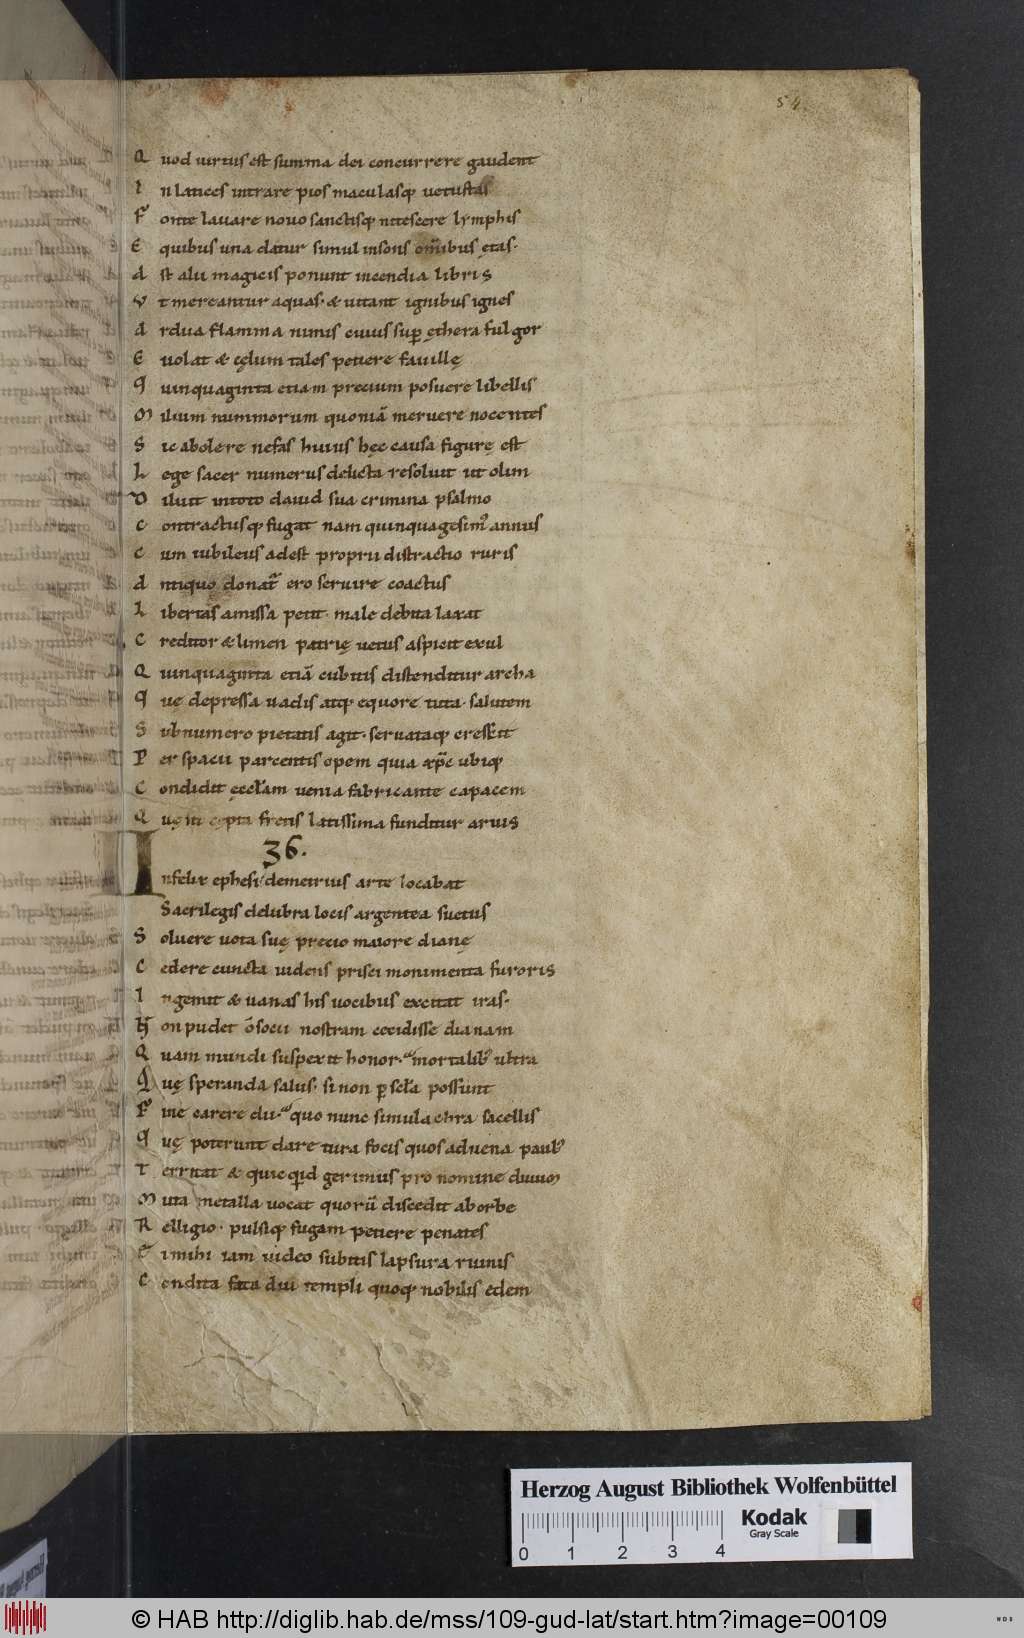 54
Quod uirtus est summa dei concurrere gaudent
In latices intrare pios maculasq; uetustas
Fonte lauare nouo sanctisq; nitescere lymphis
Equibus una datur simul insons om̄ibus ętas.
Ast alii magicis ponunt incendia libris
Vt mereantur aquas. & uitant ignibus ignes
Ardua flamma nimis cuius suꝑ ęthera fulgor
Euolat & cęlum tales petiere fauillę
Quinquaginta etiam precium posuere libellis
Milium nummorum quoniā meruere nocentes
Sic abolere nefas huius hęc causa figurę est
Lege sacer numerus delicta resoluit ut olim
Diluit intoto dauid sua crimina psalmo
Contractusq; fugat nam quinquagesim᷒ annus
Cum iubileus adest proprii distractio ruris
Antiquo donat᷑ ero seruire coactus
Libertas amissa petit. male debita laxat
Creditor & limen patrię uetus aspicit exul
Quinquaginta etiā cubitis distenditur archa
Quę depressa uadis atq; equore tuta. salutem
Sub numero pietatis agit. seruataq; crescit
Per spacii parcentis opem quia xp̄c ubiq;
Condidit ęccl̄am uenia fabricante capacem
Quę iti cępta fretis latissima funditur aruis
36.
Infelix ephesi demetrius arte locabat
Sacrilegis delubra locis argentea suetus
Soluere uota suę precio maiore dianę
Cedere cuncta uidens prisci monimenta furoris
Ingemit & uanas his uocibus excitat iras.
Non pudet ō socii nostram cecidisse dianam
Quam mundi suspexit honor. mortalib᷒ ultra
Quę speranda salus. si non ꝑ scła possunt
Fine carere dii. quo nunc simulachra sacellis
Quę poterunt dare tura focis quos aduena paul᷒
Territat & quicq̇d gerimus pro nomine diuum
Muta metalla uocat quorū discedit ab orbe
Relligio. pulsiq; fugam petiere penates
Ei mihi iam uideo subitis lapsura ruinis
Condita fata diu templi quoq; nobilis edem
Herzog August Bibliothek Wolfenbüttel
Kodak
Gray Scale
0 1 2 3 4
© HAB http://diglib.hab.de/mss/109-gud-lat/start.htm?image=00109